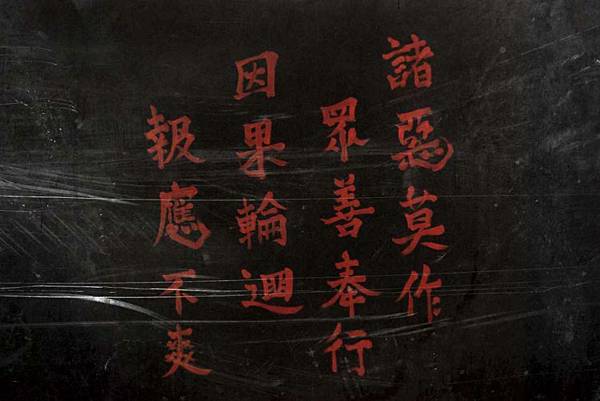 諸惡莫作
眾善奉行
因果輪迴
報應不爽